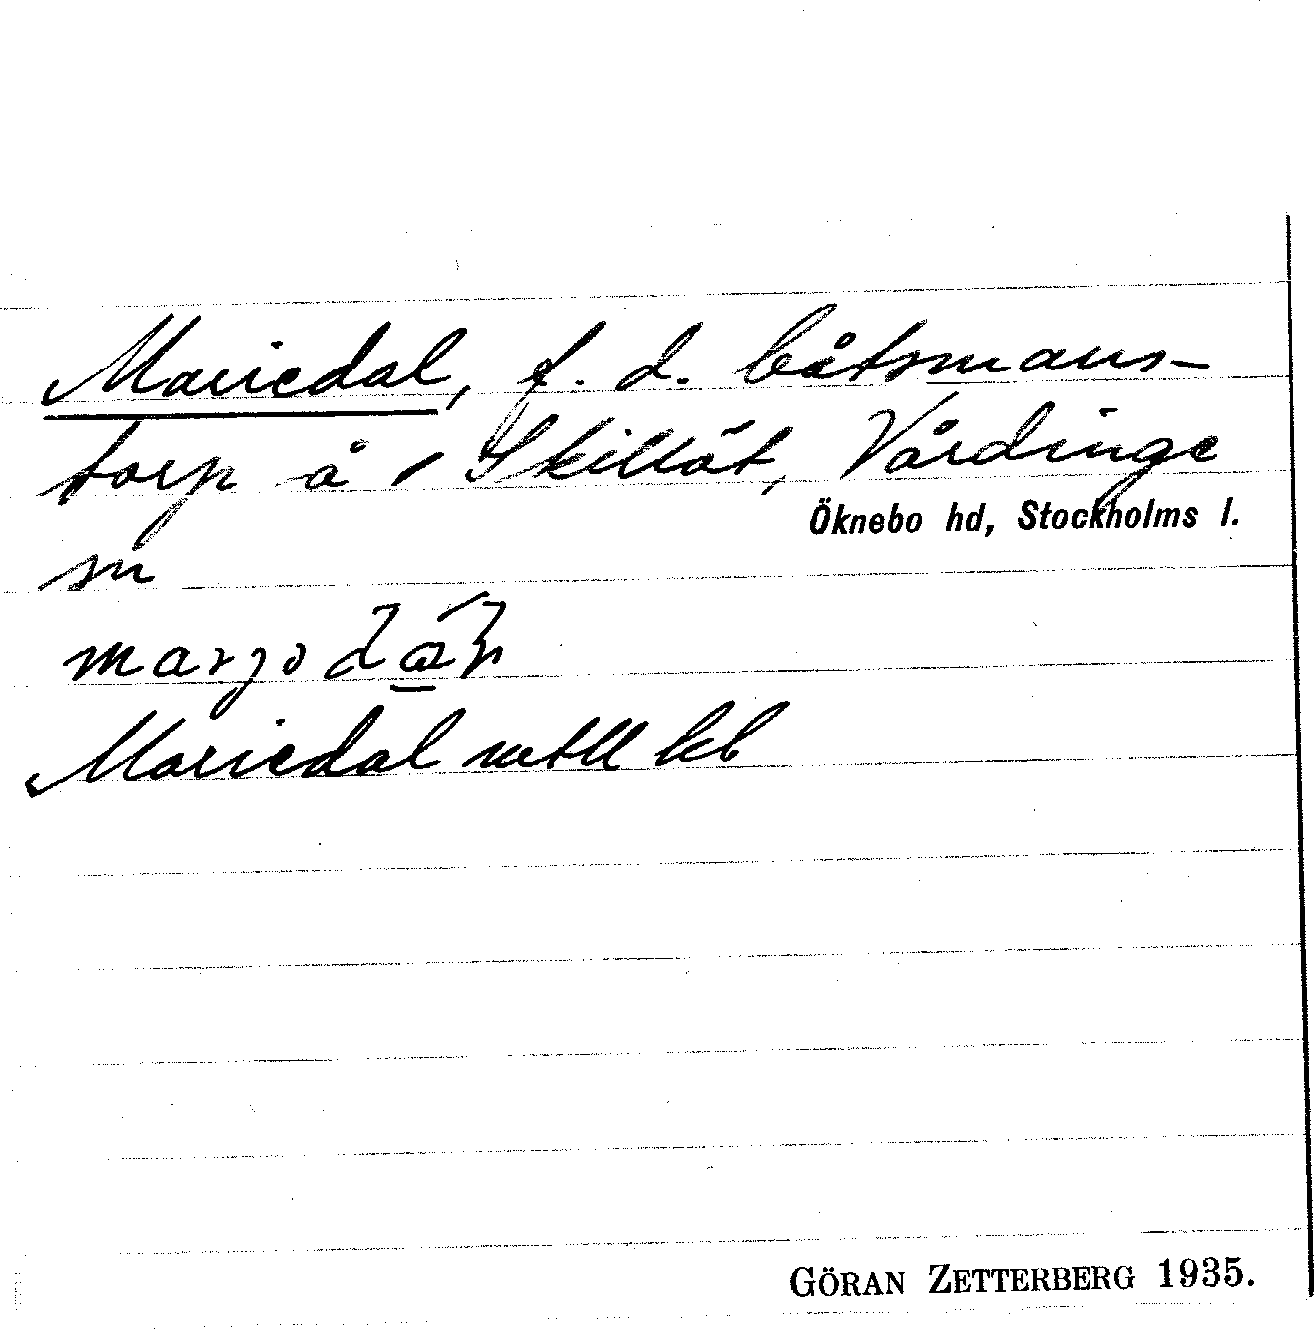 Mariedal, f. d. båtsmans-
torp å 1 Skillöt, Vårdinge
Öknebo hd, Stockholms l.
sn
Mariedal mtll kb
GÖRAN ZETTERBERG 1935.